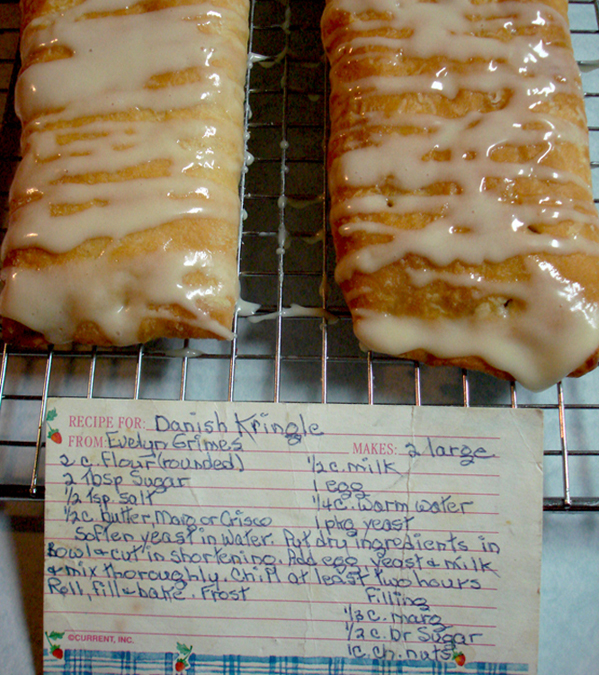 RECIPE FOR: Danish Kringle
FROM: Evelyn Grimes MAKES: 2 large
2 c. Flour (rounded) 1/2 c. milk
2 Tbsp Sugar 1 egg
1/2 Tsp. Salt 1/4 c. warm water
1/2 c. butter, Marg or Crisco 1 pkg yeast
Soften yeast in water. Put dry ingredients in
Bowl & cut in shortening. Add egg, yeast & milk
& mix thoroughly. Chill at least two hours
Roll, fill & bake. Frost Filling
1/3 c. marg
1/2 c. Br Sugar
1 c. ch. nuts
©CURRENT, INC.